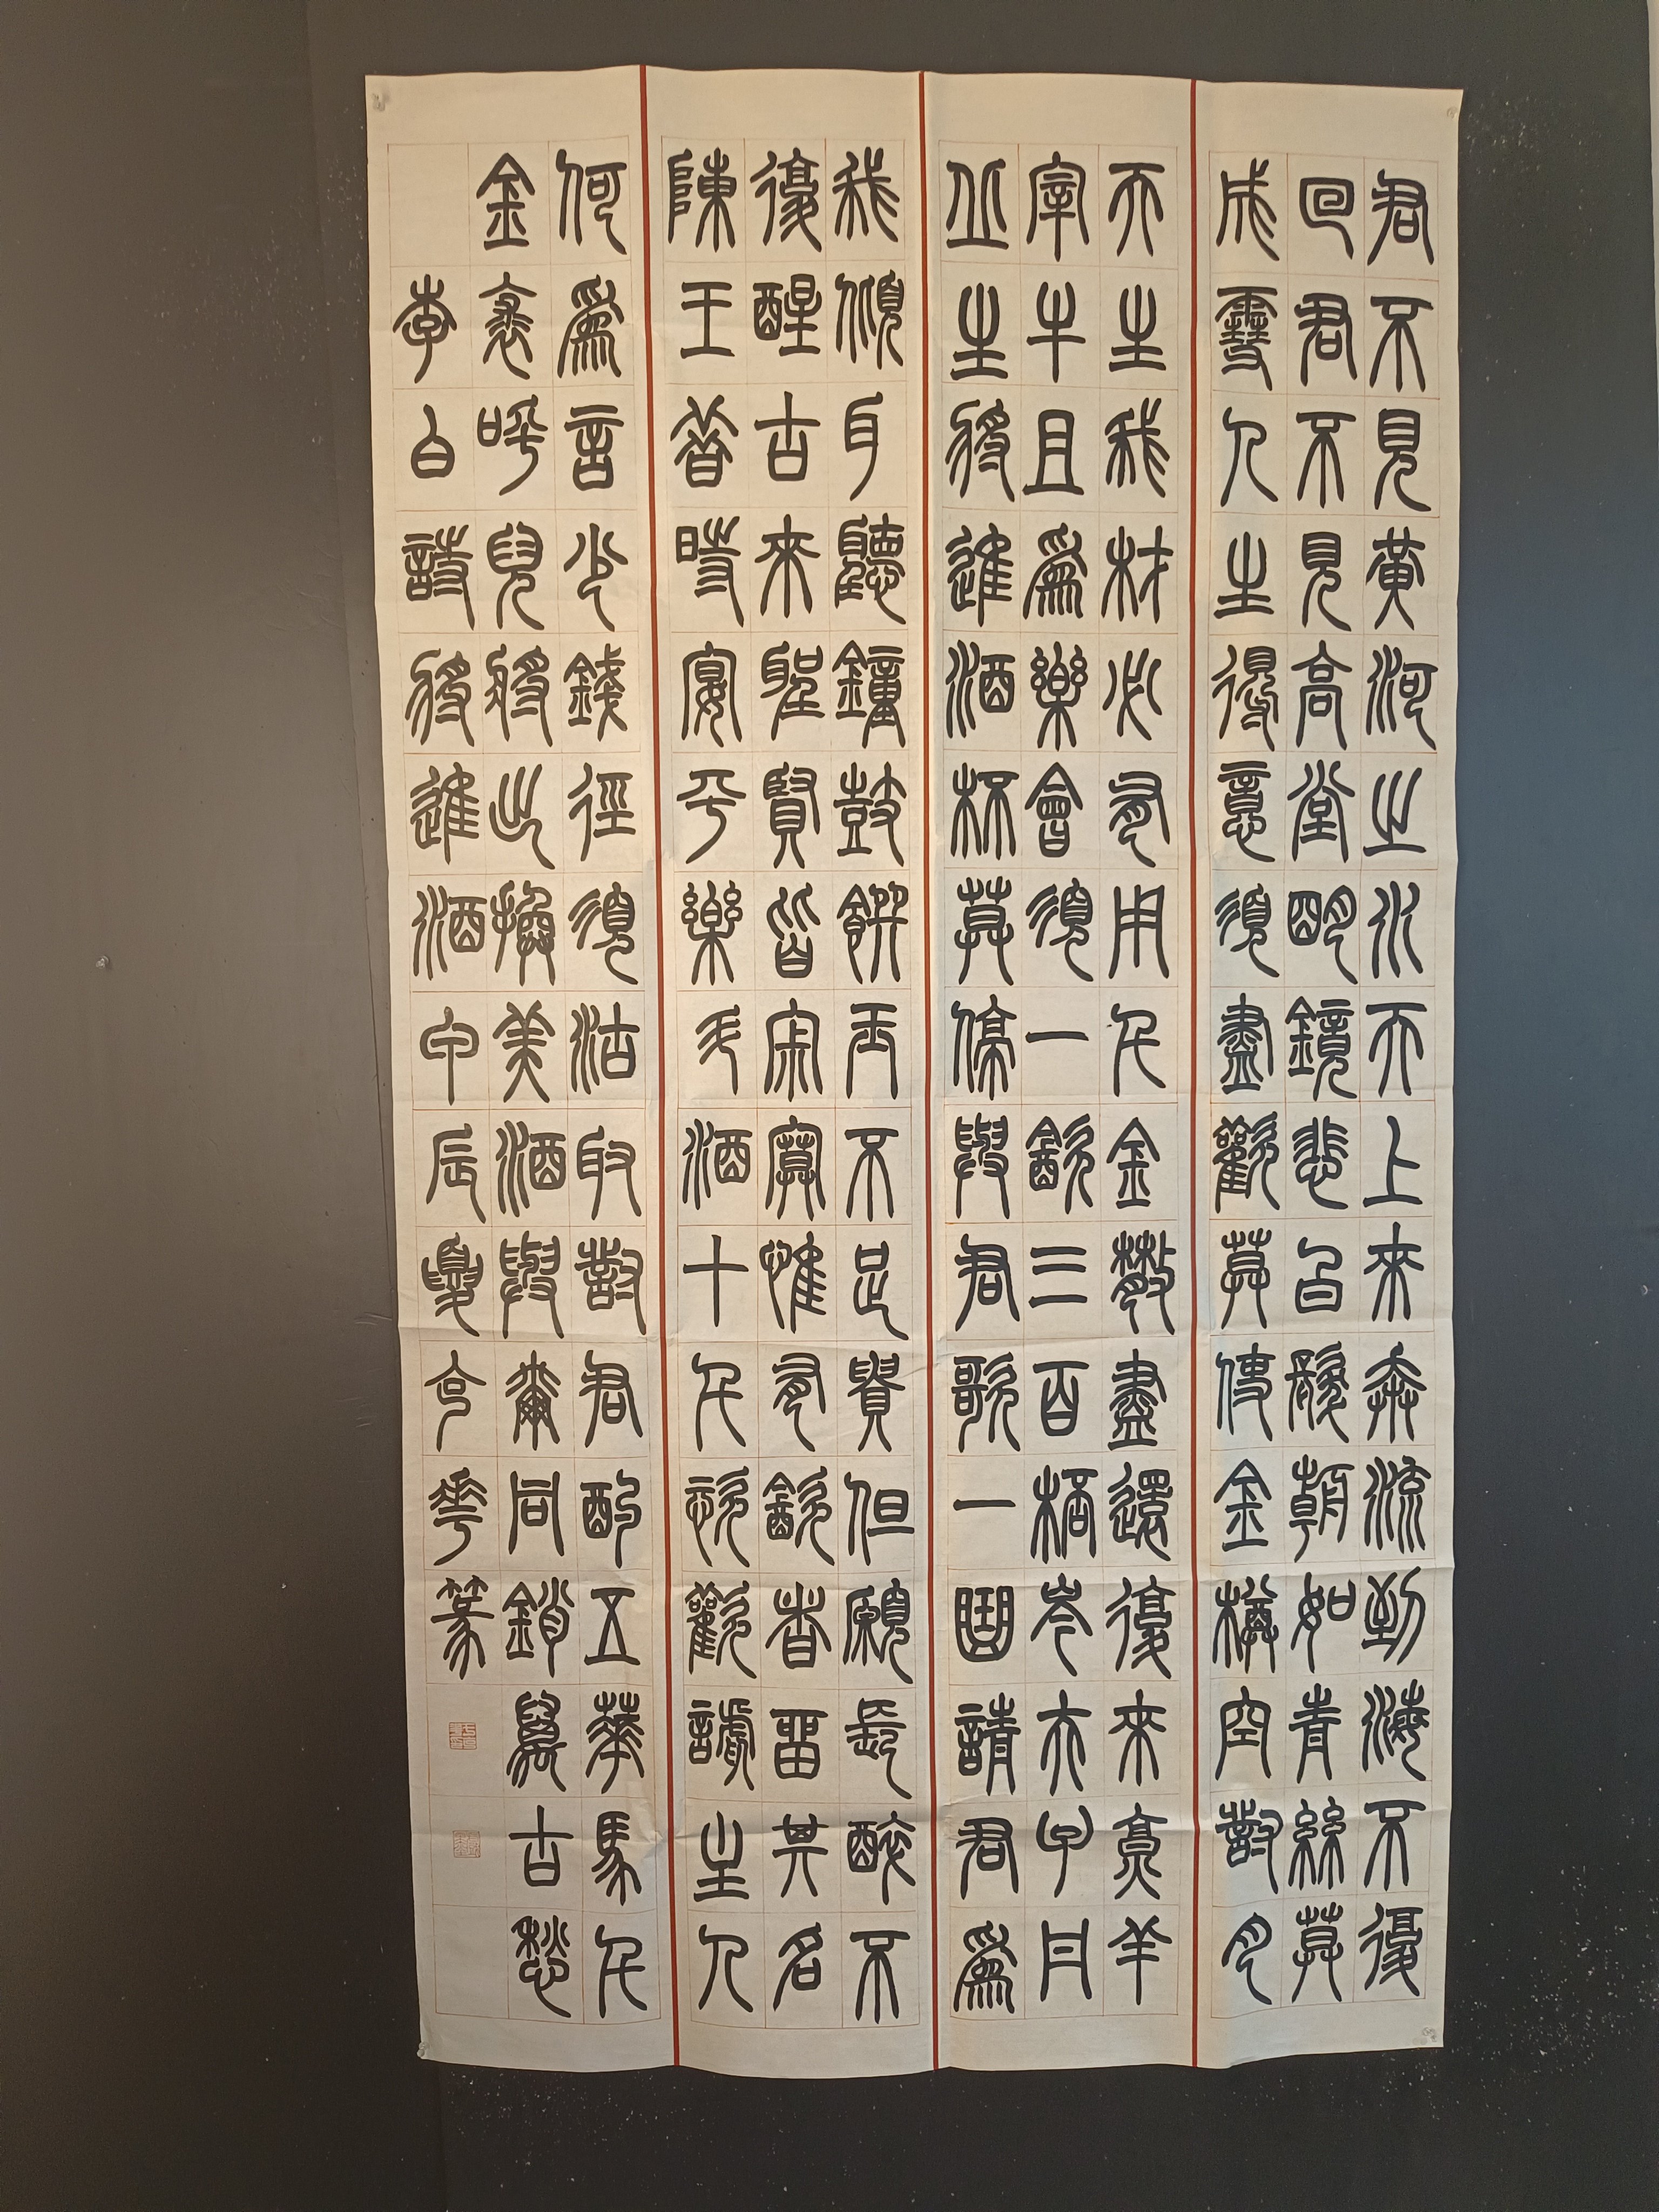 君不見黃河之水天上來奔流到海不復
回君不見高堂明鏡悲白髮朝如青絲莫
成雪人生得意須盡歡莫使金樽空對月
天生我材必有用千金散盡還復來烹羊
宰牛且爲樂會須一飲三百桮岑夫子丹
丘生將進酒杯莫停與君歌一曲請君爲
我傾耳聽鐘鼓饌玉不足貴但願長醉不
復醒古來聖賢皆寂寞惟有飲者留其名
陳王昔時宴平樂斗酒十千恣歡謔主人
何爲言少錢徑須沽取對君酌五華馬千
金裘呼兒將此換美酒與爾同銷萬古愁
李白詩將進酒甲辰夏篆